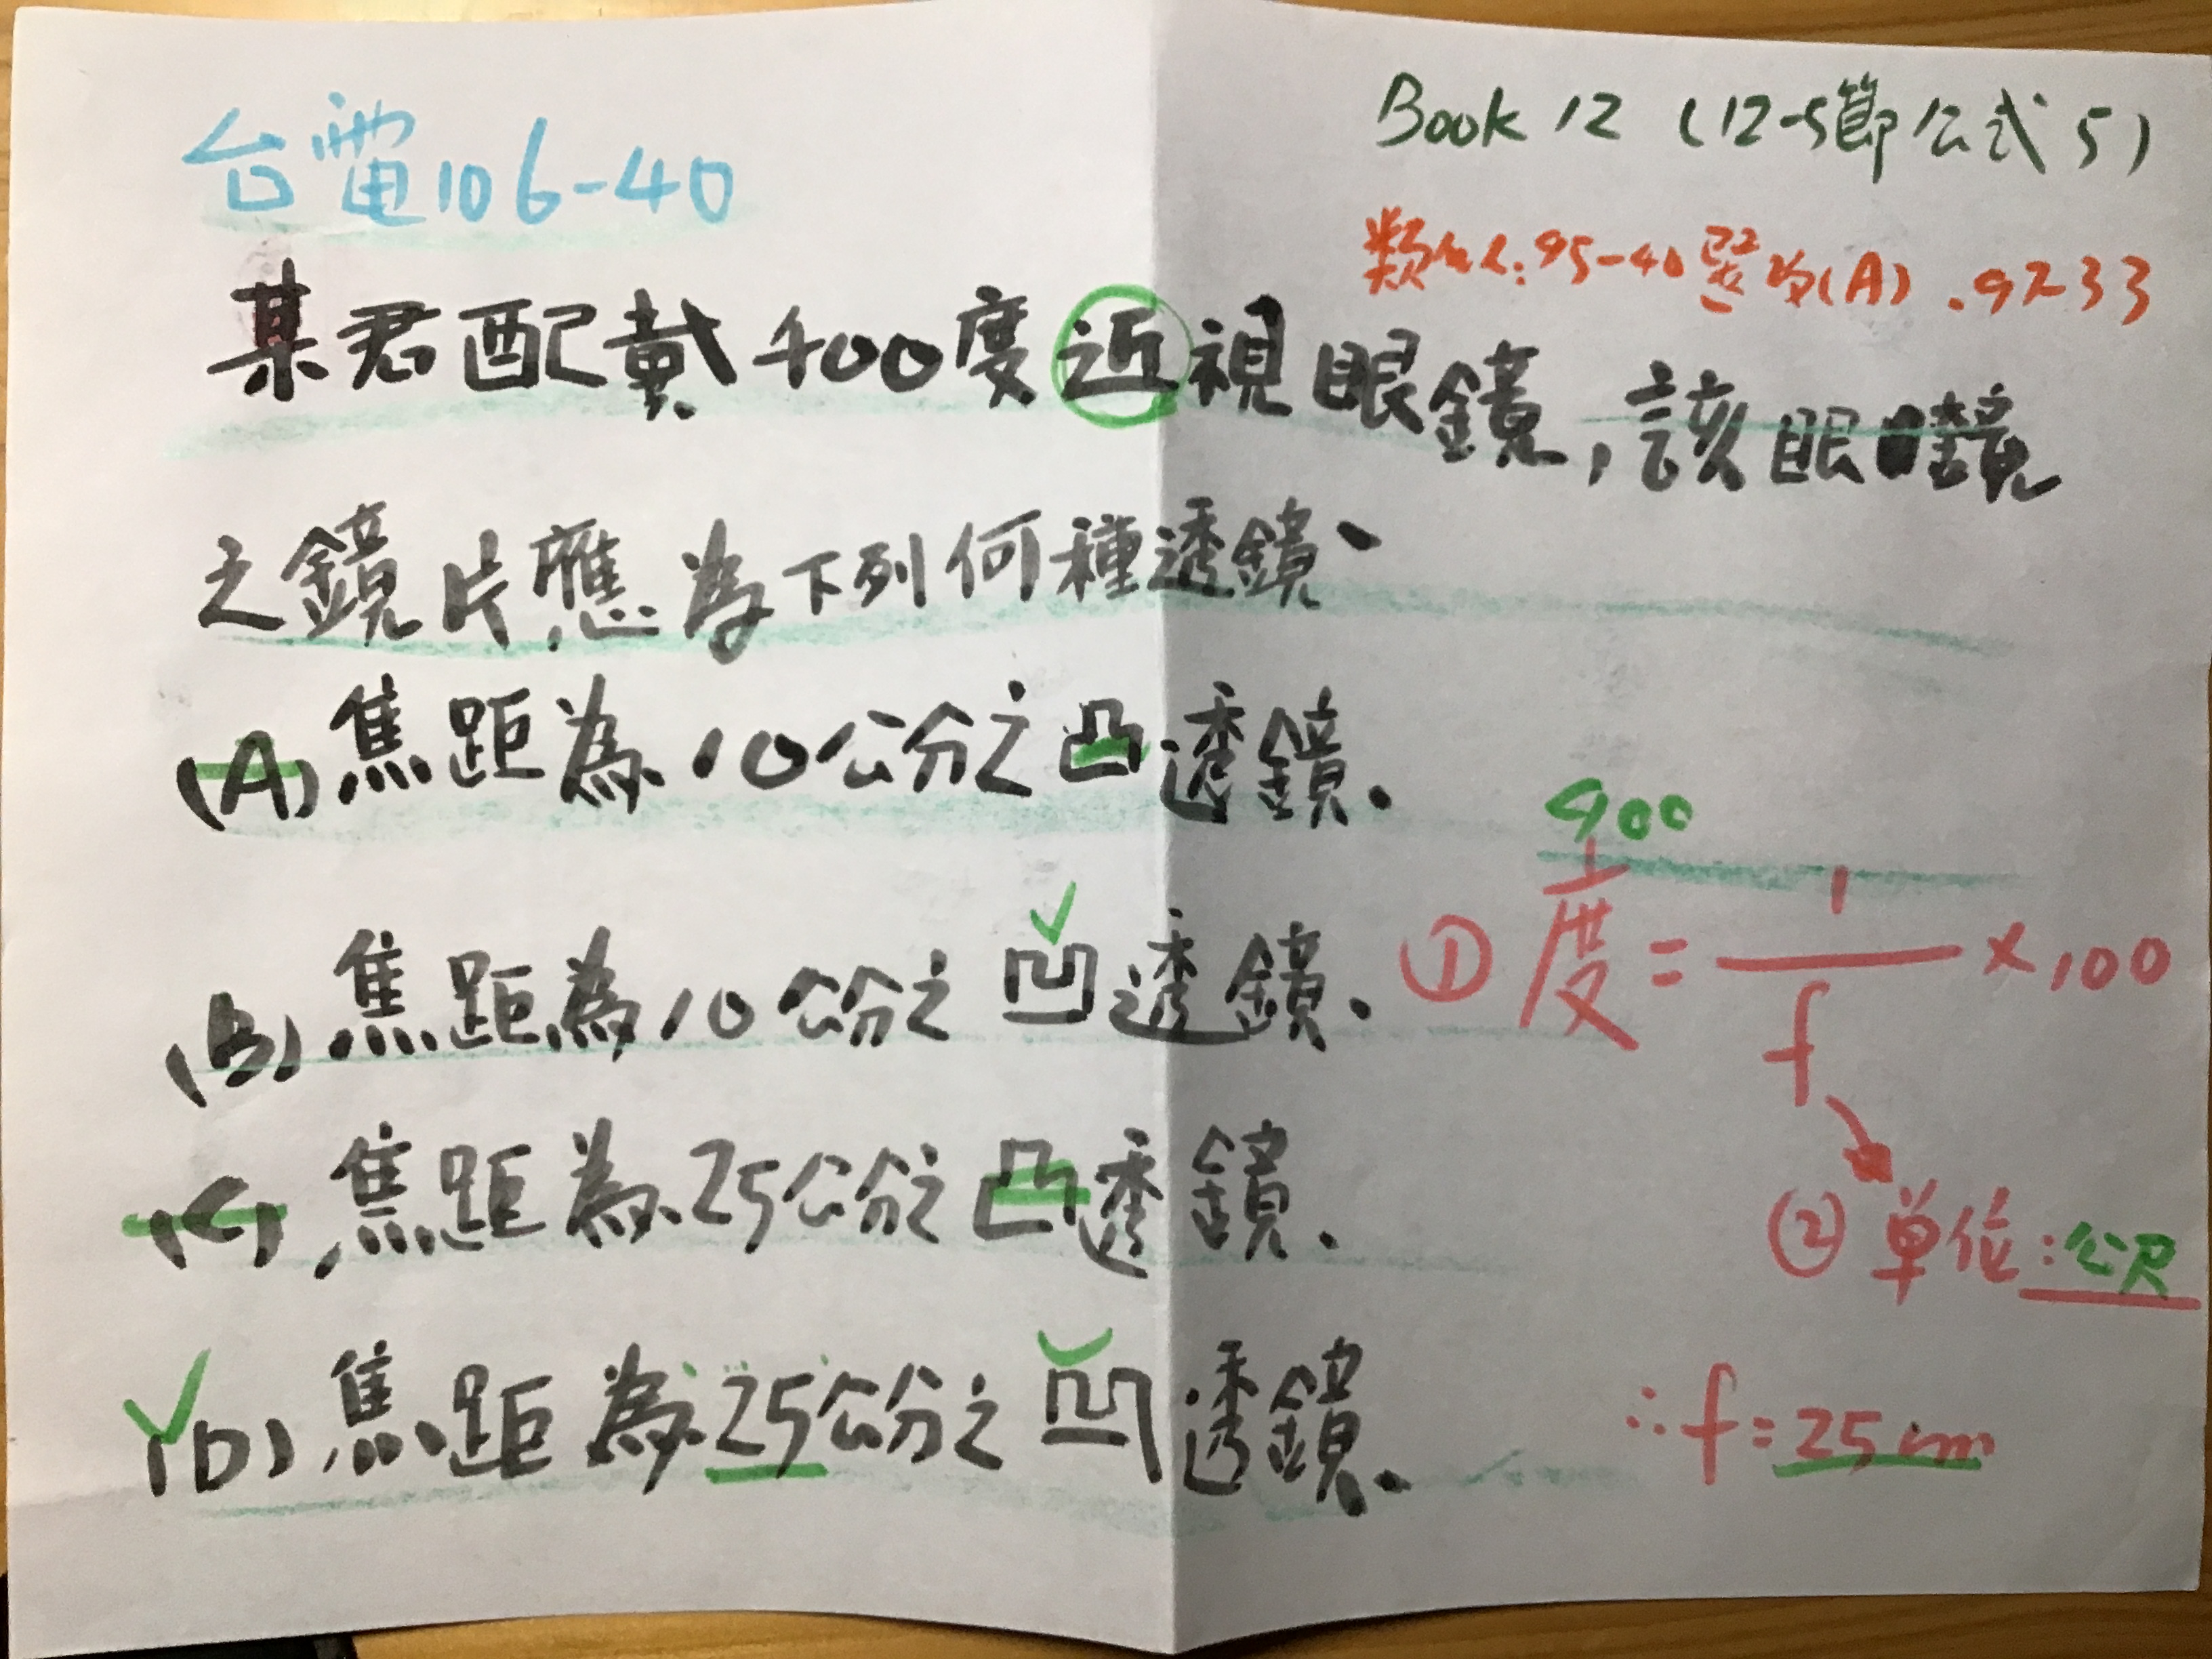 台電106-40
Book 12 (12-5節公式5)
95-40 (A).9233
某君配戴400度近視眼鏡,該眼鏡
之鏡片應為下列何種透鏡、
(A)焦距為10公分之凸透鏡.
(B)焦距為10公分之凹透鏡.
(C)焦距為25公分之凸透鏡.
(D)焦距為25公分之凹透鏡.
400
① 度=1/f×100
② 单位:公尺
∴f=25cm